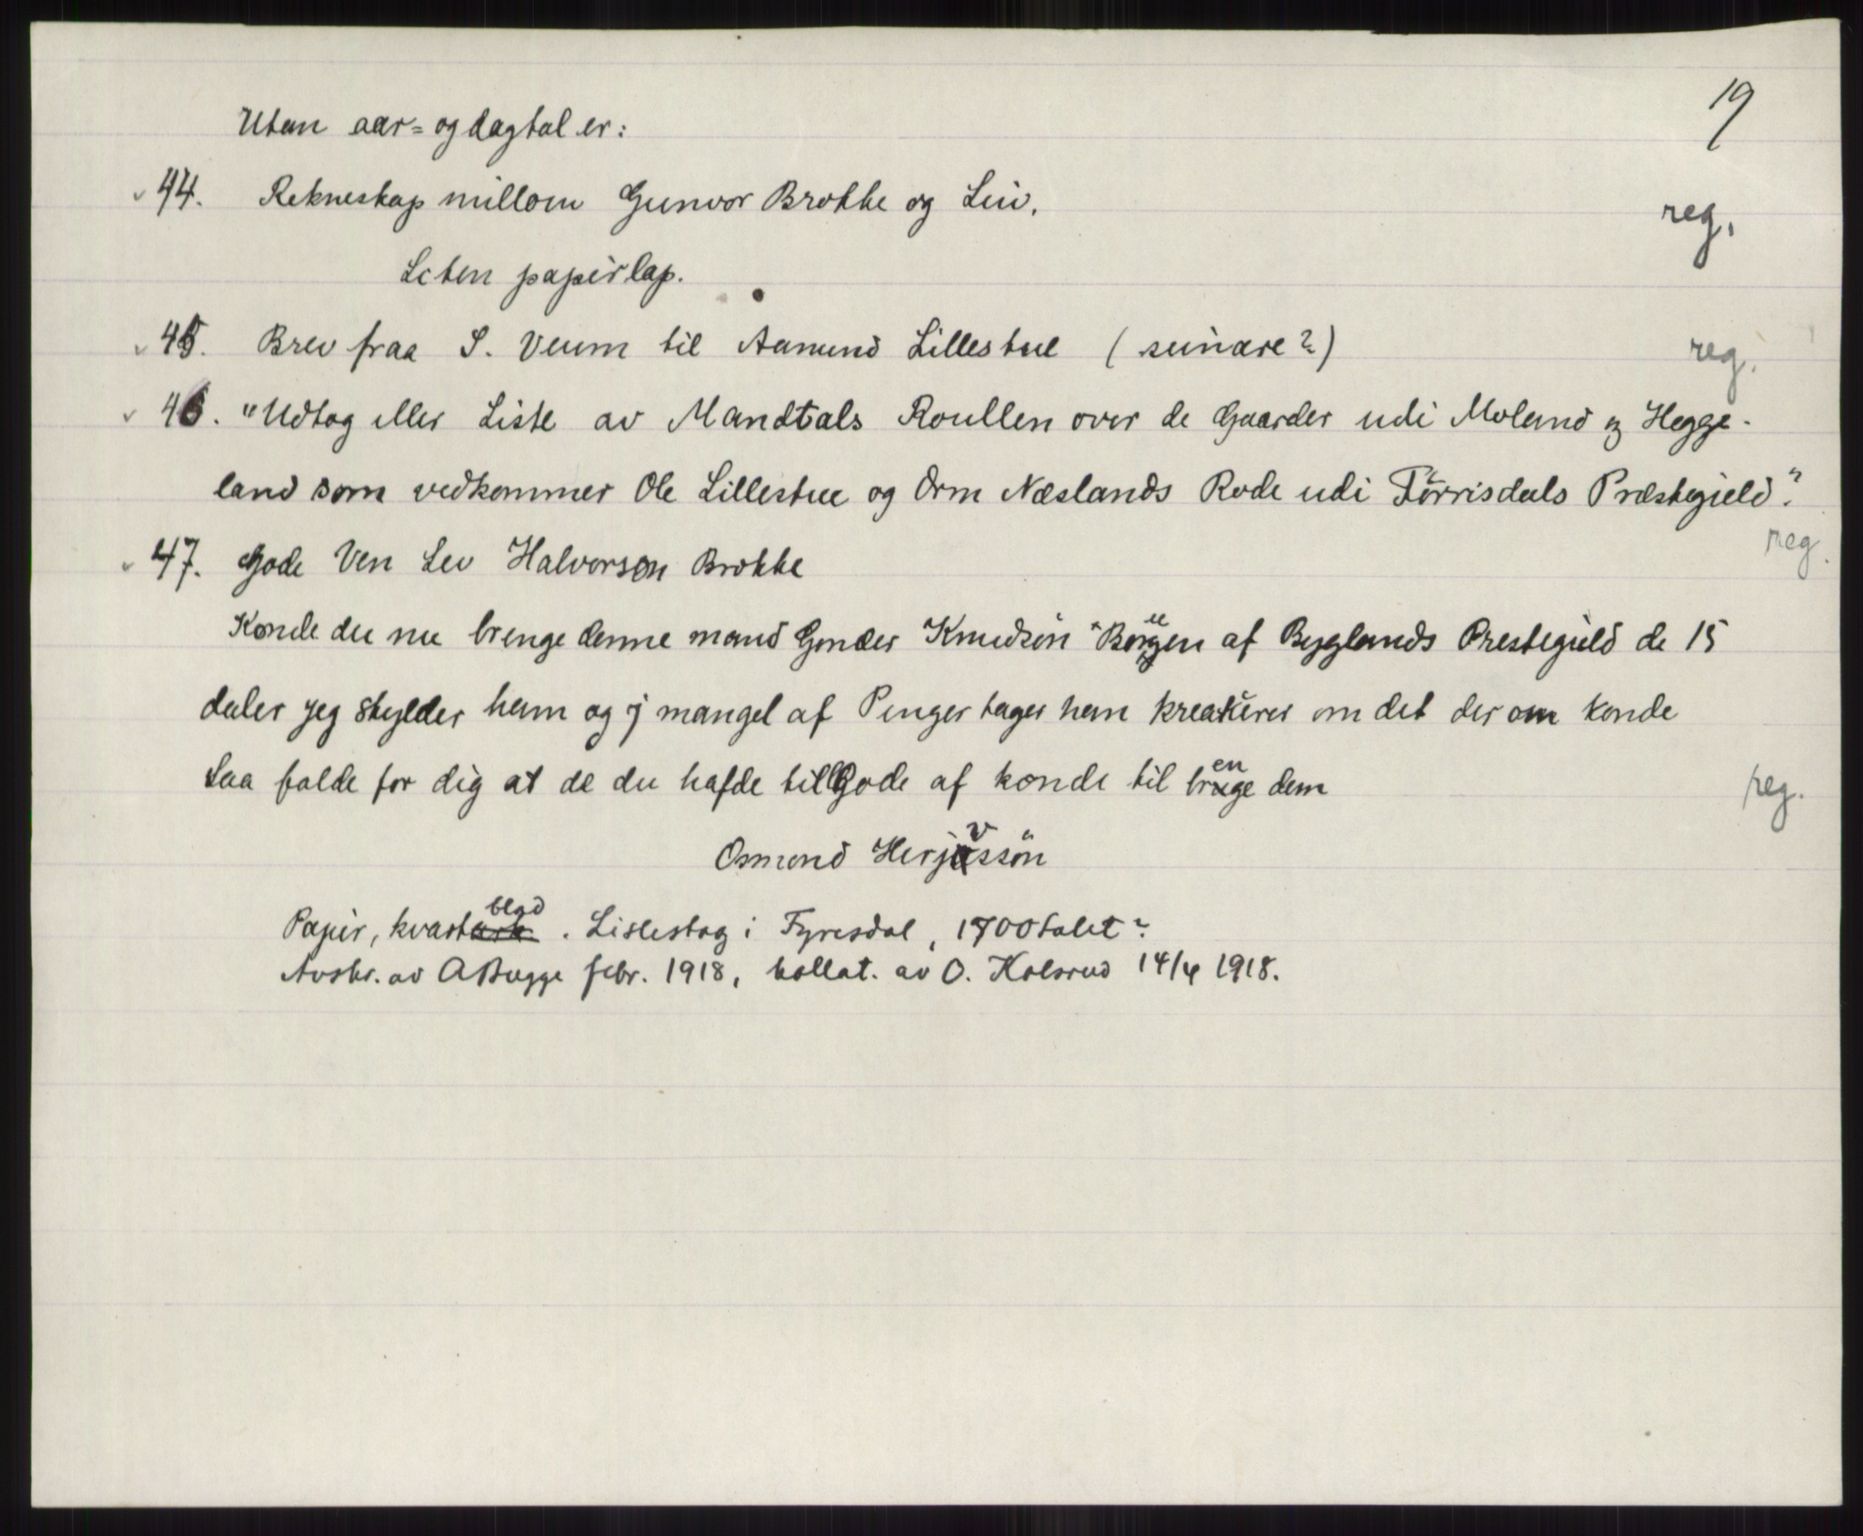 19
Utan aar= og dagtal er:
44. Rekneskap millom Gunvor Brokke og Liv. reg.
Liten papirlap.
45. Brev fraa S. Veum til Aamund Lillestul (seinare?) reg.
46. "Udtog eller Liste av Mandtals Roullen over de Gaarder udi Moland og Hegge-
land som vedkommer Ole Lillestue og Orm Næslands Rode udi Förrisdals Præstegield".
reg.
47. Gode Ven Lev Halvorson Brokke
Konde du nu brenge denne mand Gonder Knudsön Börgen af Byglands Prestegield de 15
daler jeg skylder ham og j mangel af Penger tager han kreatŭrer om det der om konde
Saa falde for dig at de du hafde tillgode af konde til brenge dem reg.
Osmond Herjvssön
Papir, kvartblad. Lislestog i Fyresdal, 1700talet?
Avskr. av A Bugge febr. 1918, kollat. av O. Kolsrud 14/4 1918.